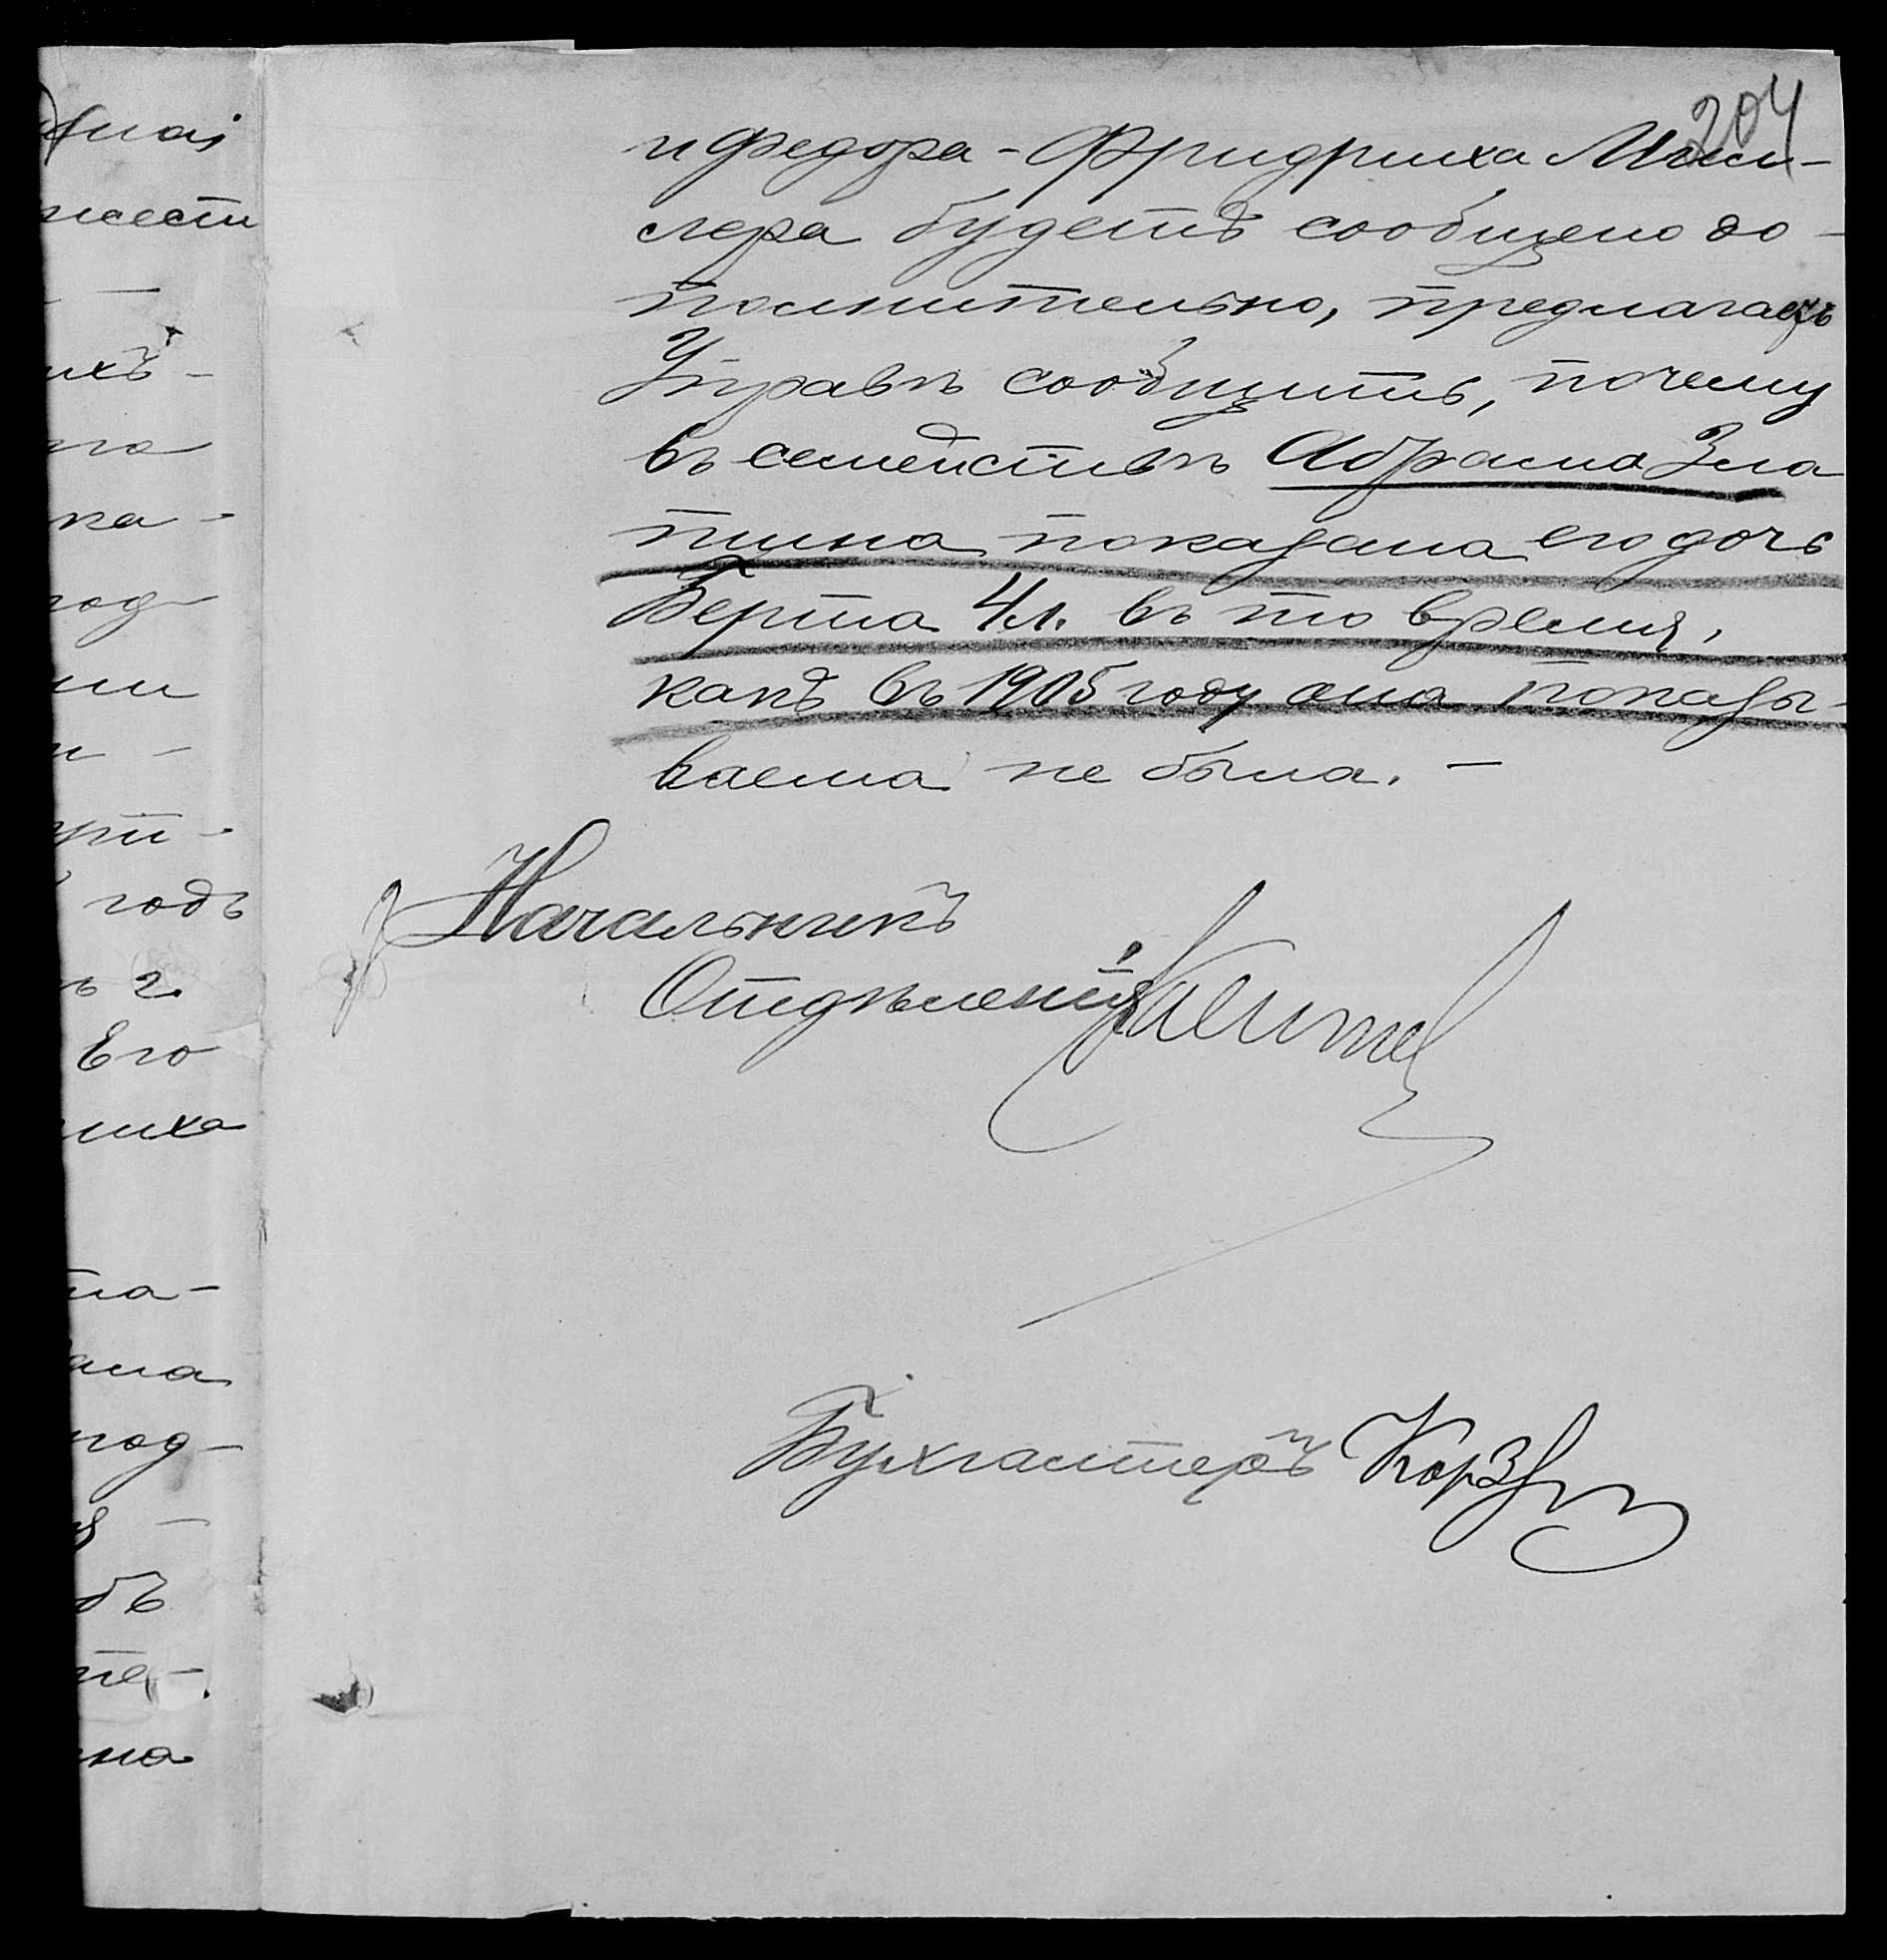 204
и Федора-Фридриха Мил-
лера будетъ сообщено до-
полнительно, предлагаетъ
Управѣ сообщить, почему
въ семействѣ Абрама Зла
тина показана его дочь
Берта 4 л. въ то время,
какъ въ 1905 году она показы-
ваема не была. —
Начальникъ
Отдѣленія
Бухгалтеръ
ихъ -
ка -
под-
ми
и -
при -
годъ
ъ 2.
Его
риха
ла-
ана
под-
бъ
на